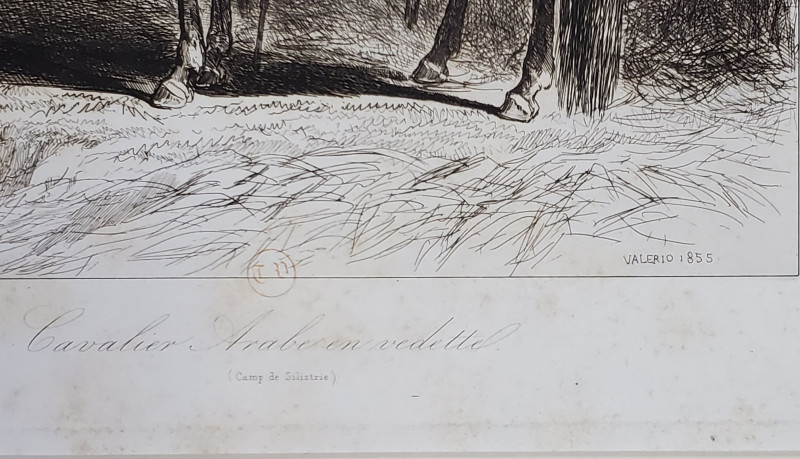 VALERIO 1855
Cavalier Arabe en vedette.
(Camp de Silistrie)